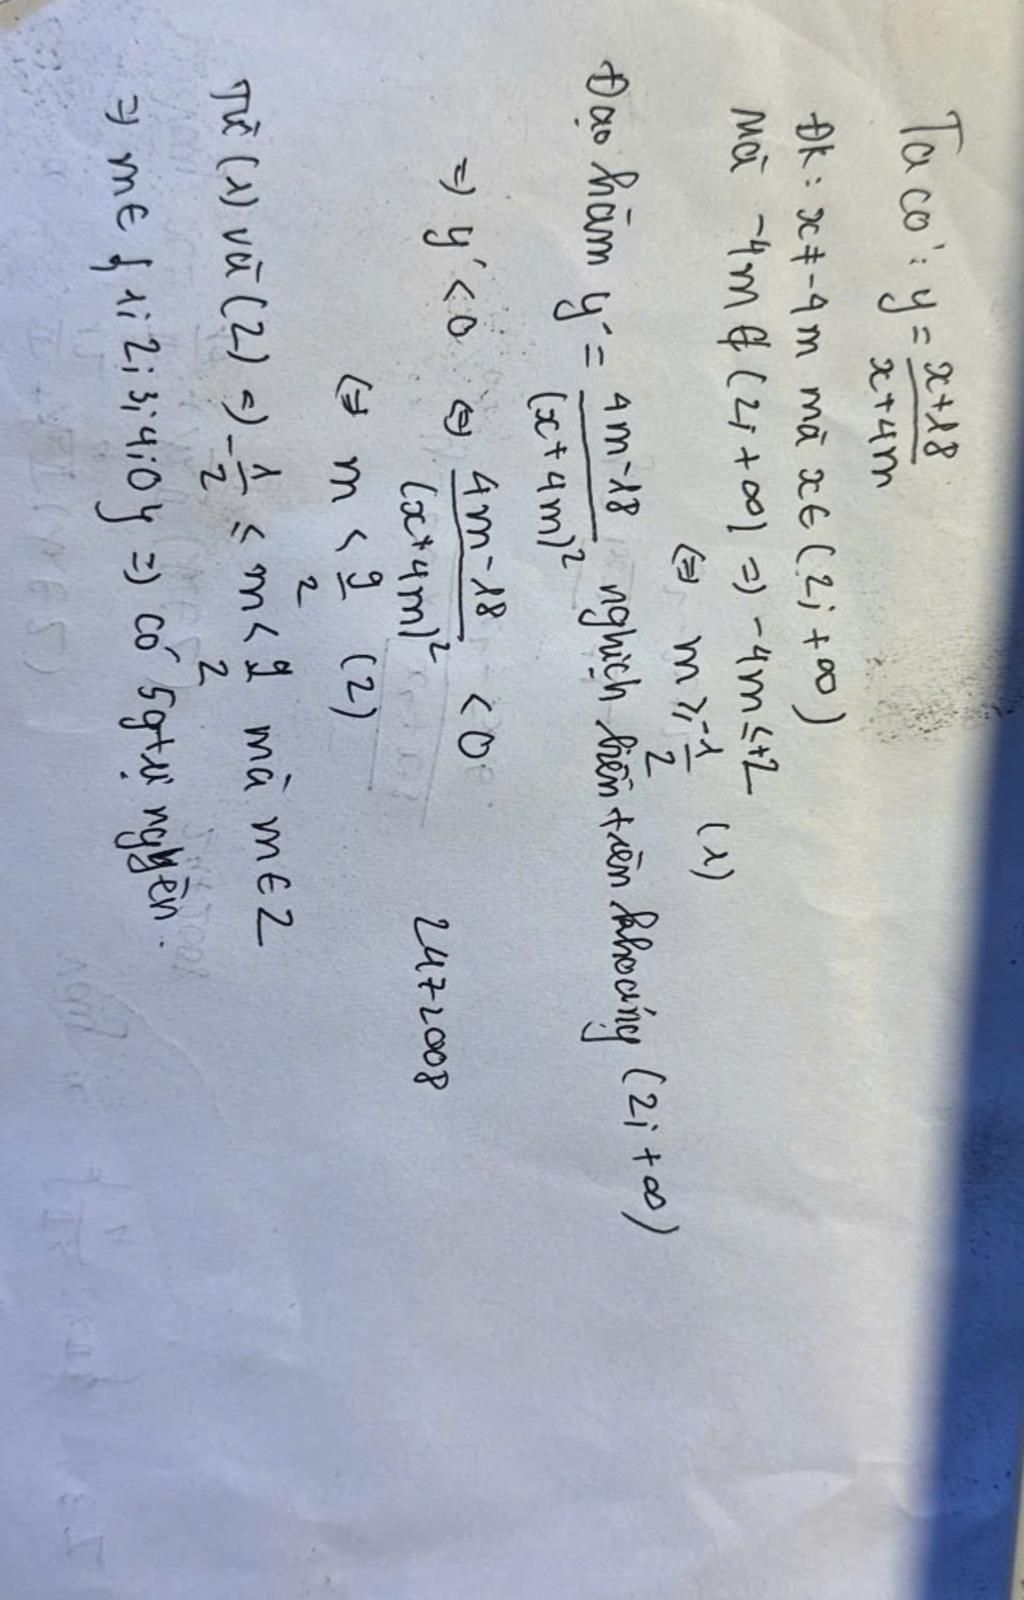 Ta có: y = x+18 / x+4m
Đk: x ≠ -4m mà x ∈ (2; +∞)
mà -4m ∉ (2; +∞) => -4m ≤ +2
<=> m ≥ -1/2 (1)
Đạo hàm y' = 4m-18 / (x+4m)² nghịch biến trên khoảng (2; +∞)
=> y' < 0 <=> 4m-18 / (x+4m)² < 0
<=> m < 9/2 (2)
2472008
Từ (1) và (2) => -1/2 ≤ m < 9/2 mà m ∈ Z
=> m ∈ {1; 2; 3; 4; 0} => có 5 gtrị nguyên.